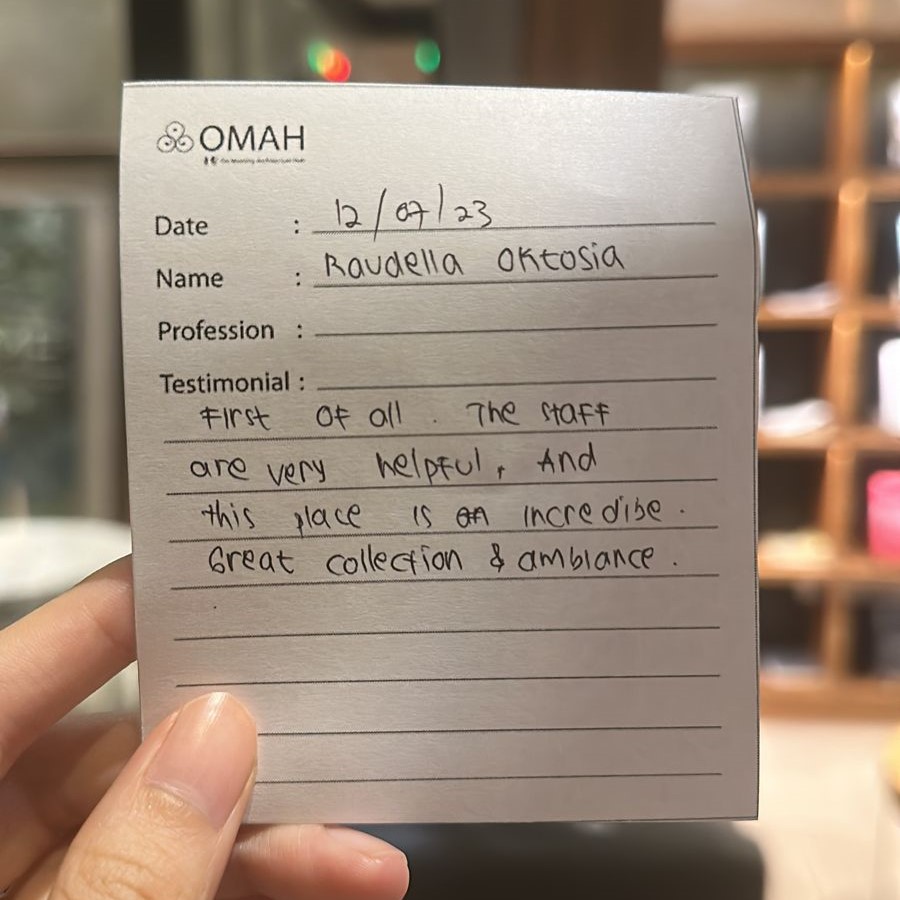 OMAH
Date : 12/07/23
Name : Raudella Oktosia
Profession :
Testimonial :
First of all. The staff
are very helpful, And
this place is an incredibe.
Great collection & ambiance.